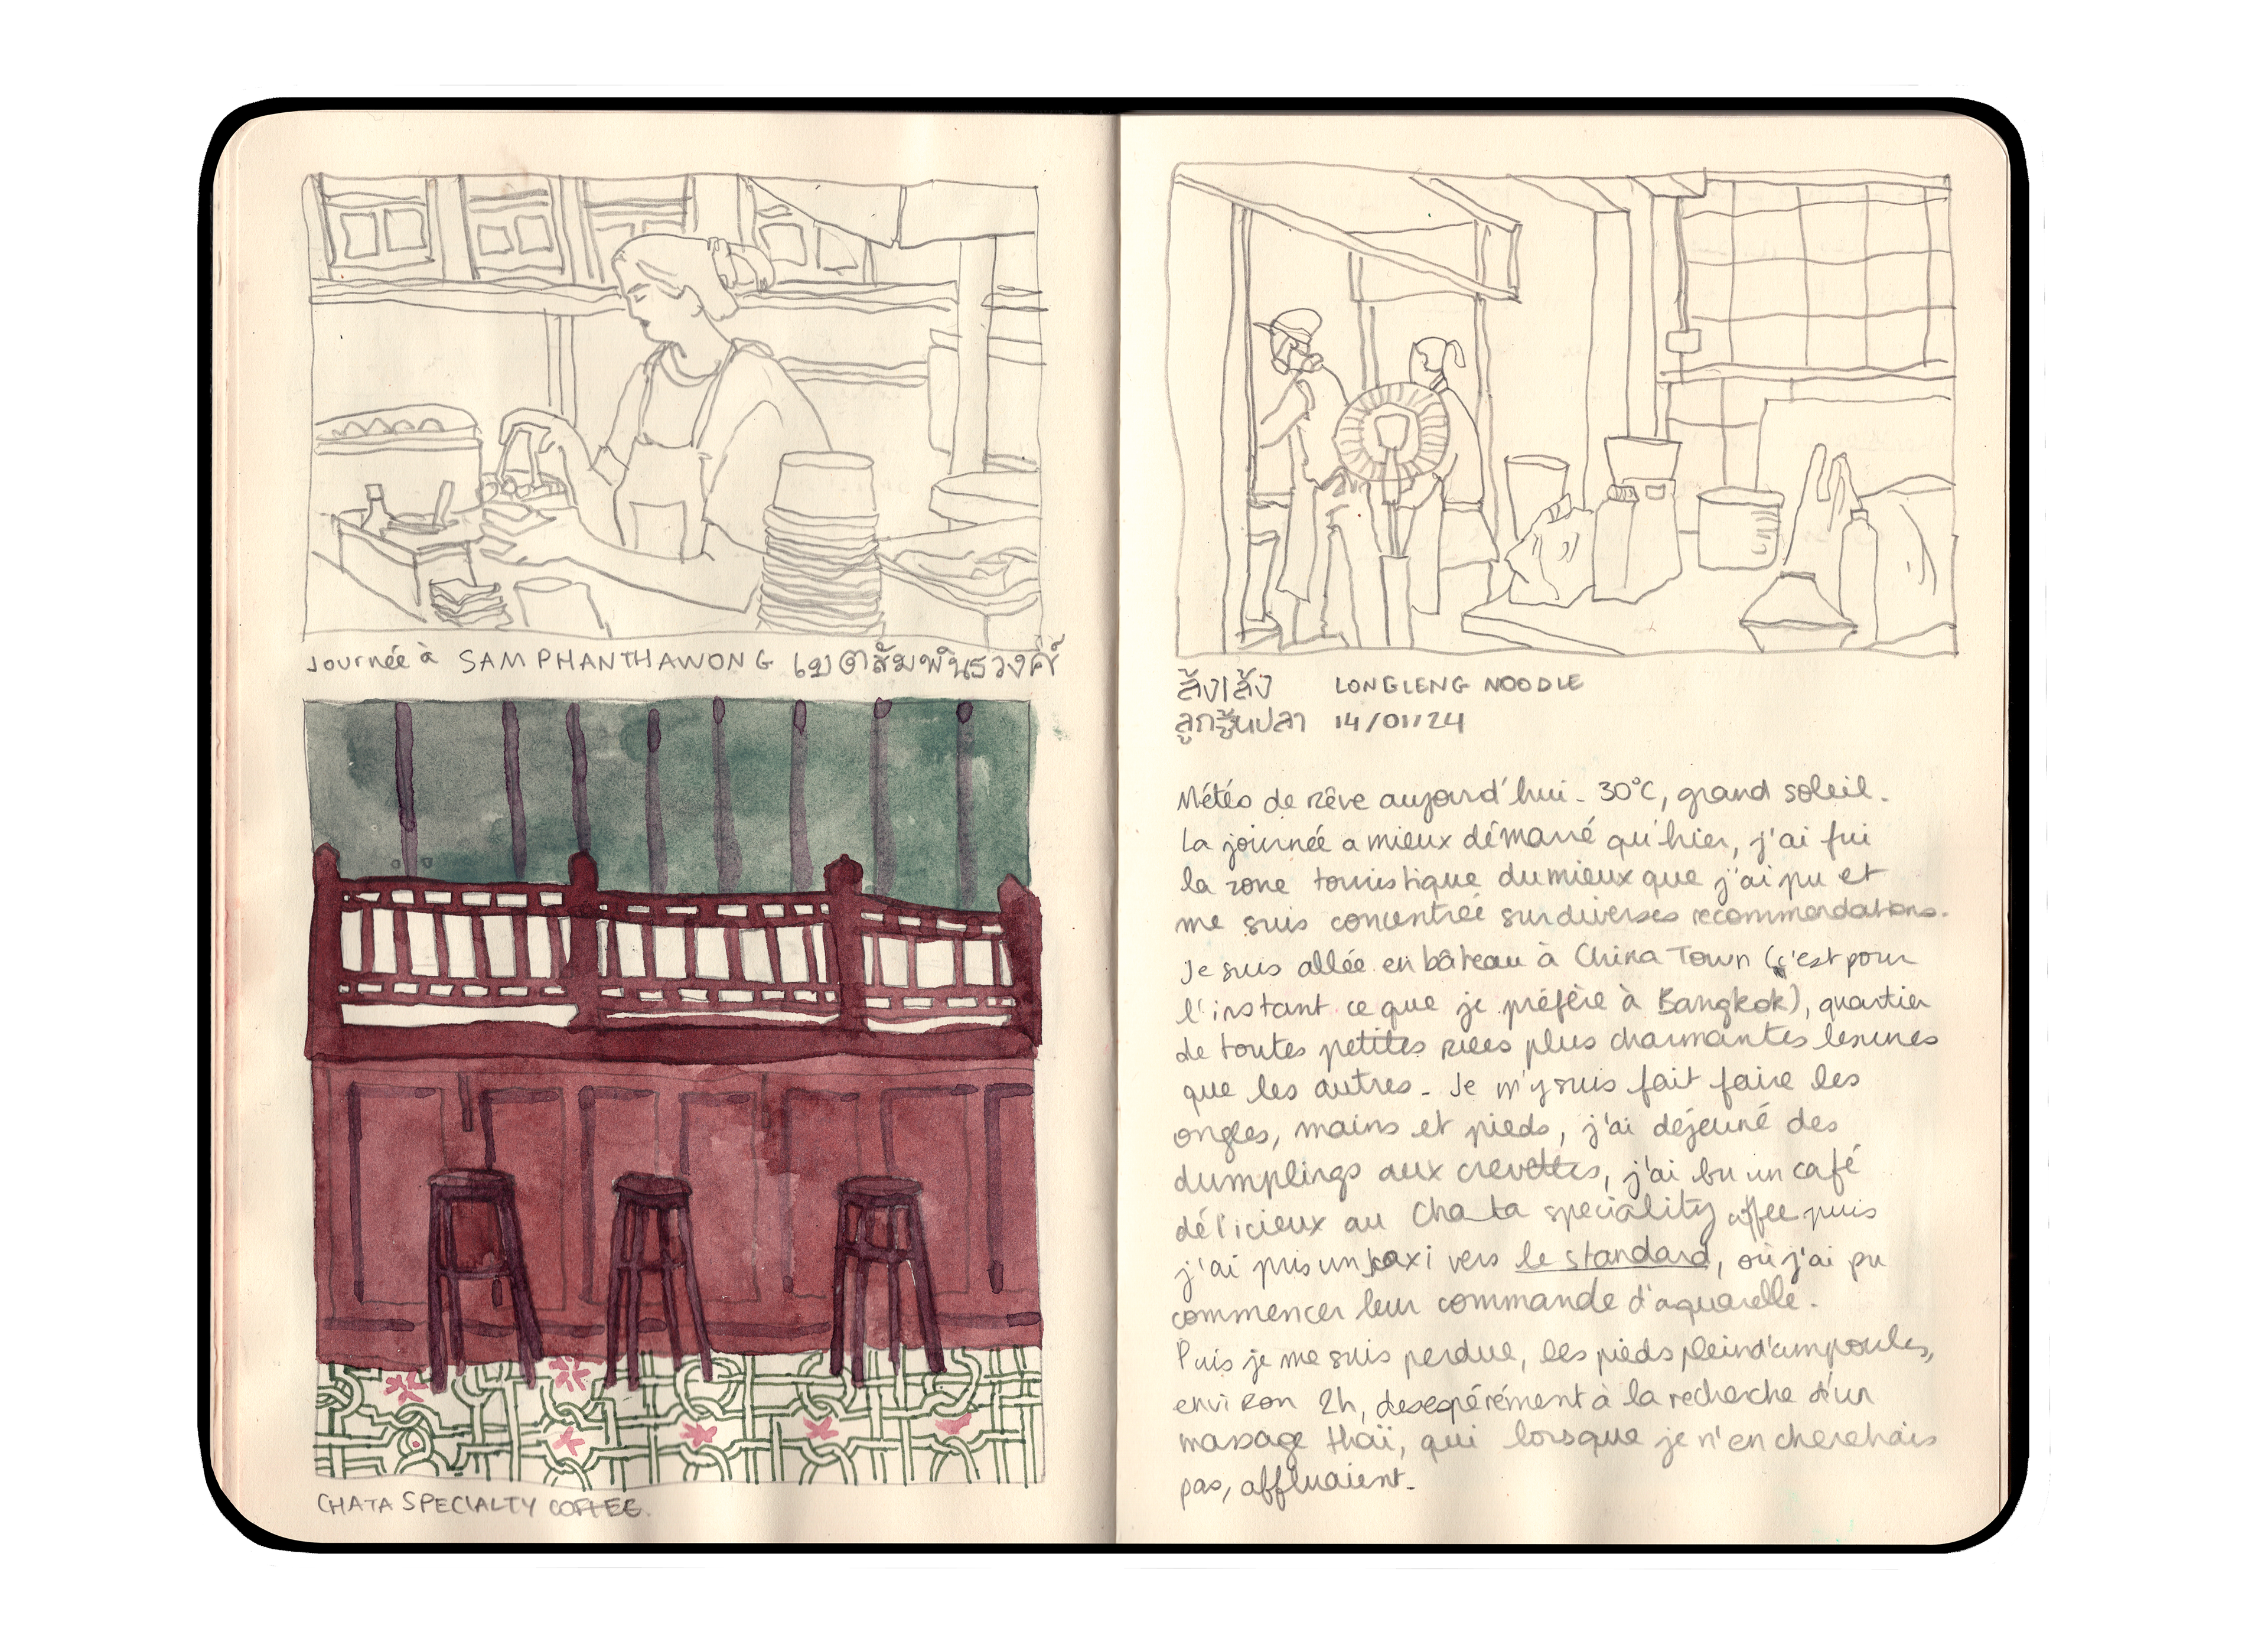 Journée à SAMPHANTHAWONG เขตสัมพันธวงศ์
CHATA SPECIALTY COFFEE.
ล้ง เล้ง LONGLENG NOODLE
ลูกชิ้นปลา 14/01/24
Météo de rêve aujourd'hui. 30°C, grand soleil.
La journée a mieux démarré qu'hier, j'ai fui
la zone touristique du mieux que j'ai pu et
me suis concentrée sur diverses recommendations.
Je suis allée en bâteau à China Town (c'est pour
l'instant ce que je préfère à Bangkok), quartier
de toutes petites rues plus charmantes les unes
que les autres. Je m'y suis fait faire les
ongles, mains et pieds, j'ai déjeuné des
dumplings aux crevettes, j'ai bu un café
délicieux au Chata speciality coffee puis
j'ai pris un taxi vers le standard, où j'ai pu
commencer leur commande d'aquarelle.
Puis je me suis perdue, les pieds plein d'ampoules,
environ 2h, desespérément à la recherche d'un
massage thaï, qui lorsque je n'en cherchais
pas, affluaient.